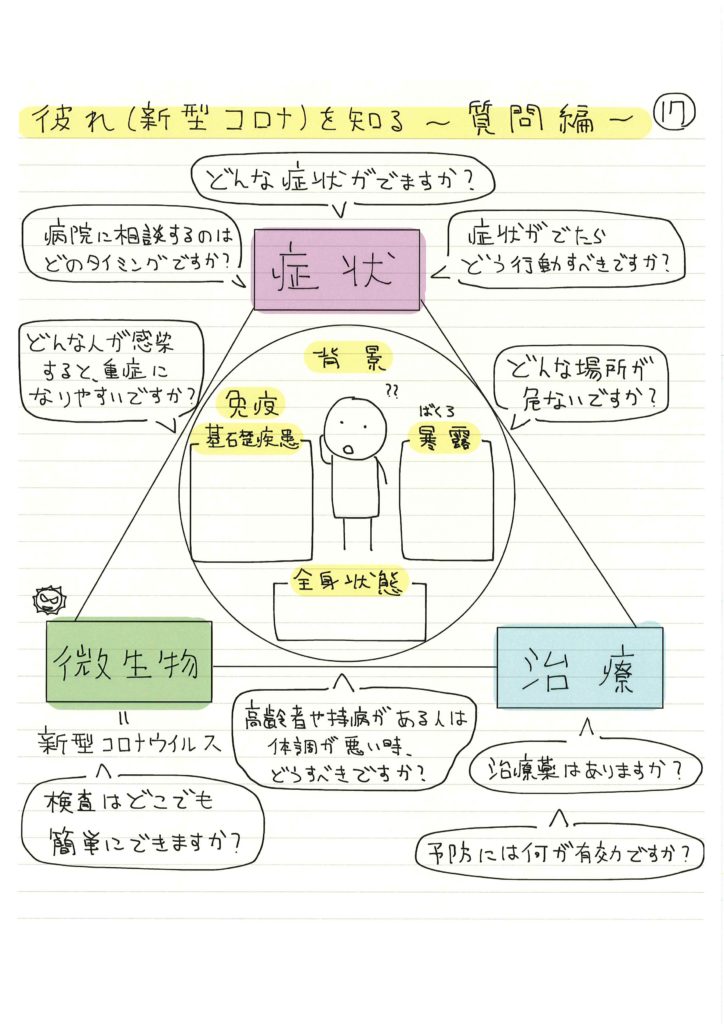 彼れ(新型コロナ)を知る〜質問編〜 17
どんな症状がでますか?
病院に相談するのは
どのタイミングですか?
症状
症状がでたら
どう行動すべきですか?
どんな人が感染
すると、重症に
なりやすいですか?
背景
どんな場所が
危ないですか?
免疫
基礎疾患
??
ばくろ
暴露
全身状態
微生物
治療
=
新型コロナウイルス
高齢者や持病がある人は
体調が悪い時、
どうすべきですか?
治療薬はありますか?
検査はどこでも
簡単にできますか?
予防には何が有効ですか?